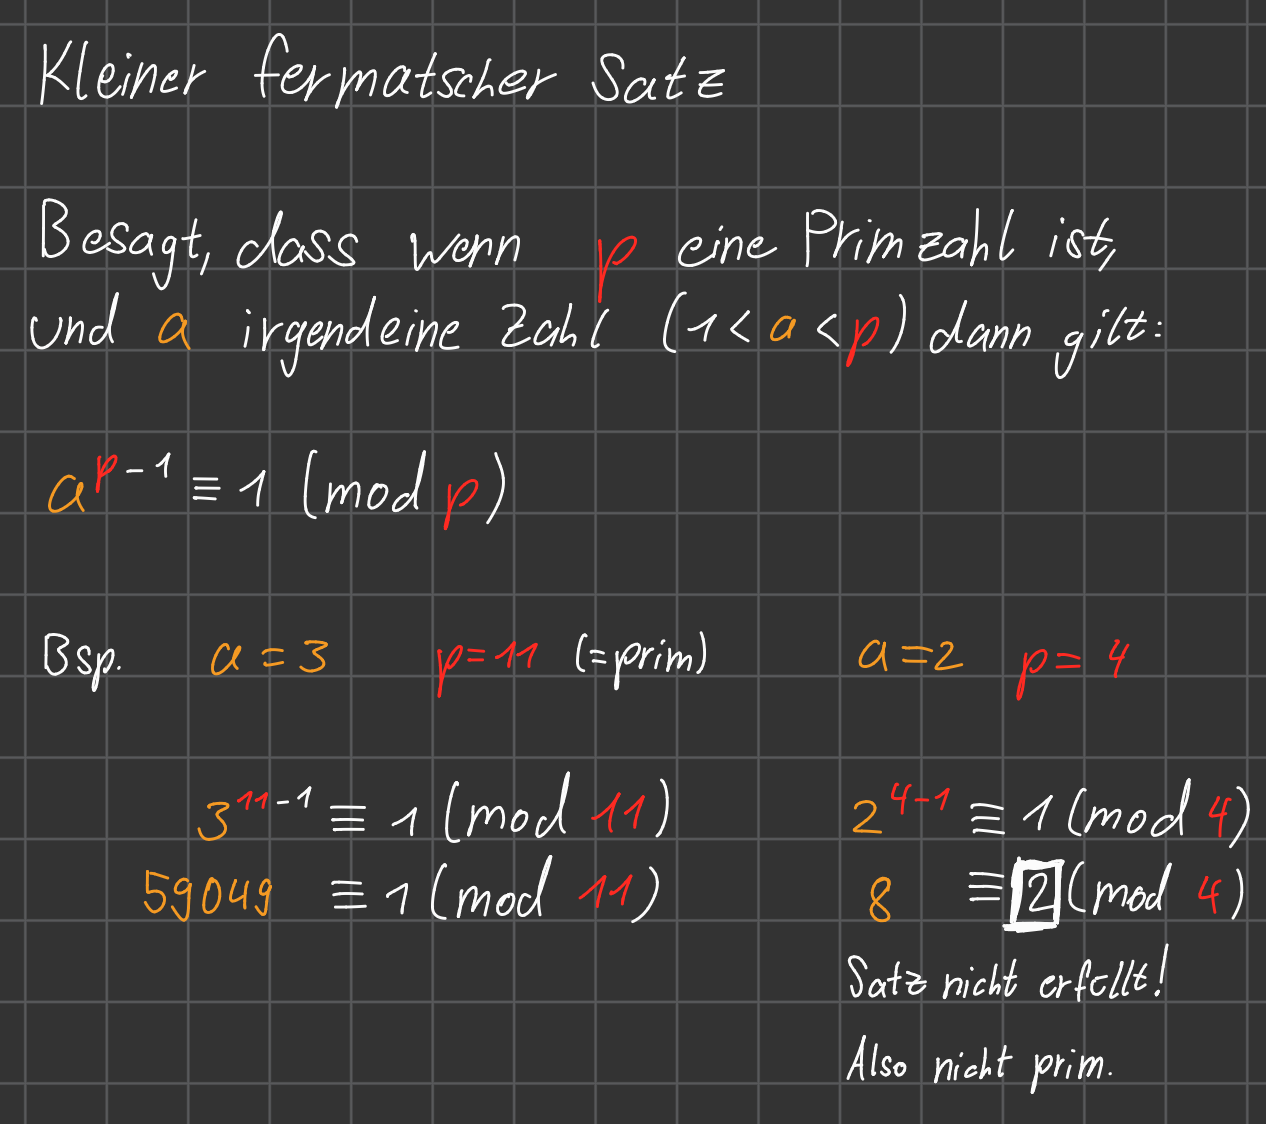 Kleiner fermatscher Satz
Besagt, dass wenn p eine Primzahl ist,
und a irgendeine Zahl (1 < a < p) dann gilt:
a^{p-1} ≡ 1 (mod p)
Bsp. a = 3 p = 11 (=prim) a = 2 p = 4
3^{11-1} ≡ 1 (mod 11) 2^{4-1} ≡ 1 (mod 4)
59049 ≡ 1 (mod 11) 8 ≡ 2 (mod 4)
Satz nicht erfüllt!
Also nicht prim.